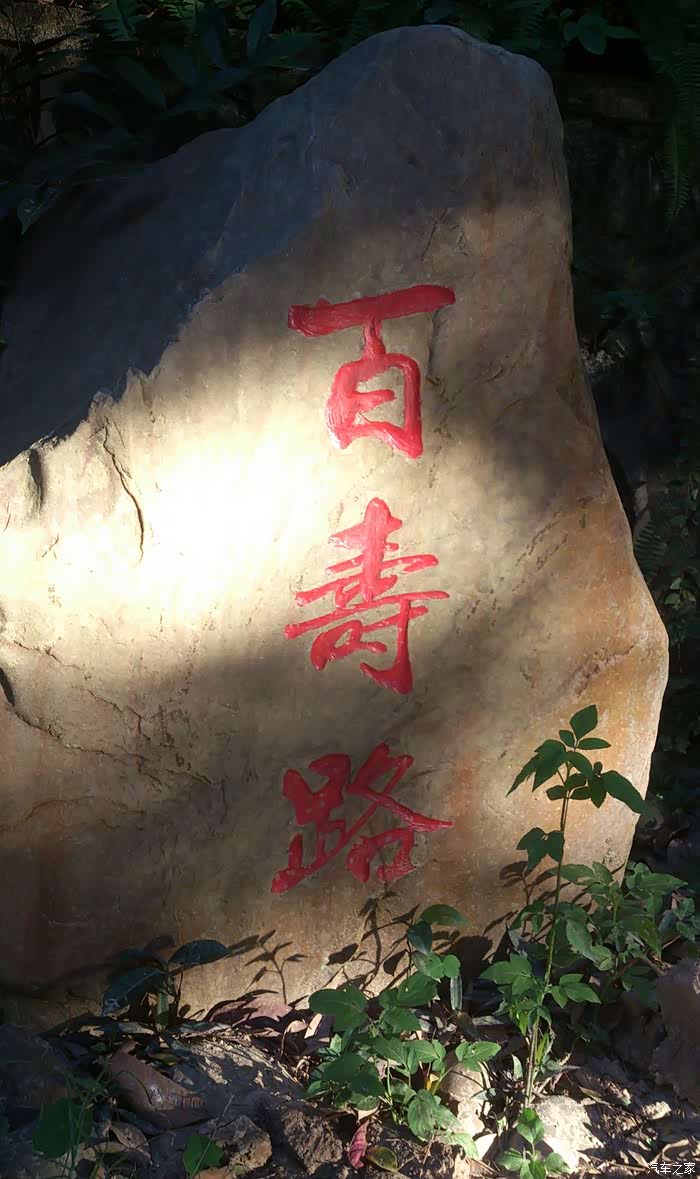 百壽路
汽车之家